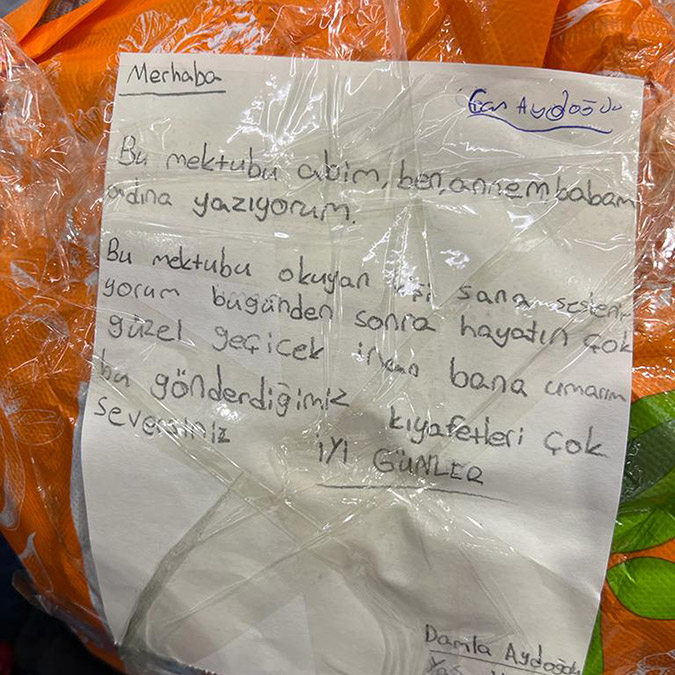 Merhaba
Can Aydoğdu
Bu mektubu abim, ben, annem babam
adına yazıyorum.
Bu mektubu okuyan kişi sana seslen
yorum bugünden sonra hayatın çok
güzel geçicek inan bana umarım
bu gönderdiğimiz kıyafetleri çok
seversiniz
İYİ GÜNLER
Damla Aydoğdu